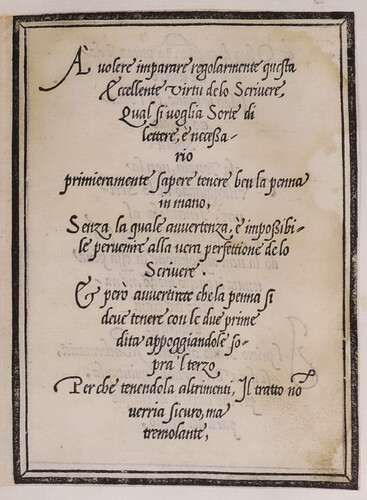 A volere imparare regolarmente questa
Eccellente Virtu de lo Scrivere,
Qual si voglia Sorte di
lettere, è necessa-
rio
primieramente sapere tenere ben la penna
in mano,
Senza la quale avvertenza, è impoßibi-
le pervenire alla vera perfettione de lo
Scrivere.
Et però avvertirete che la penna si
deve tenere con le due prime
dita appoggiandole so-
pra'l terzo
Perche tenendola altrimenti, Il tratto nõ
verria sicuro, ma
tremolante,